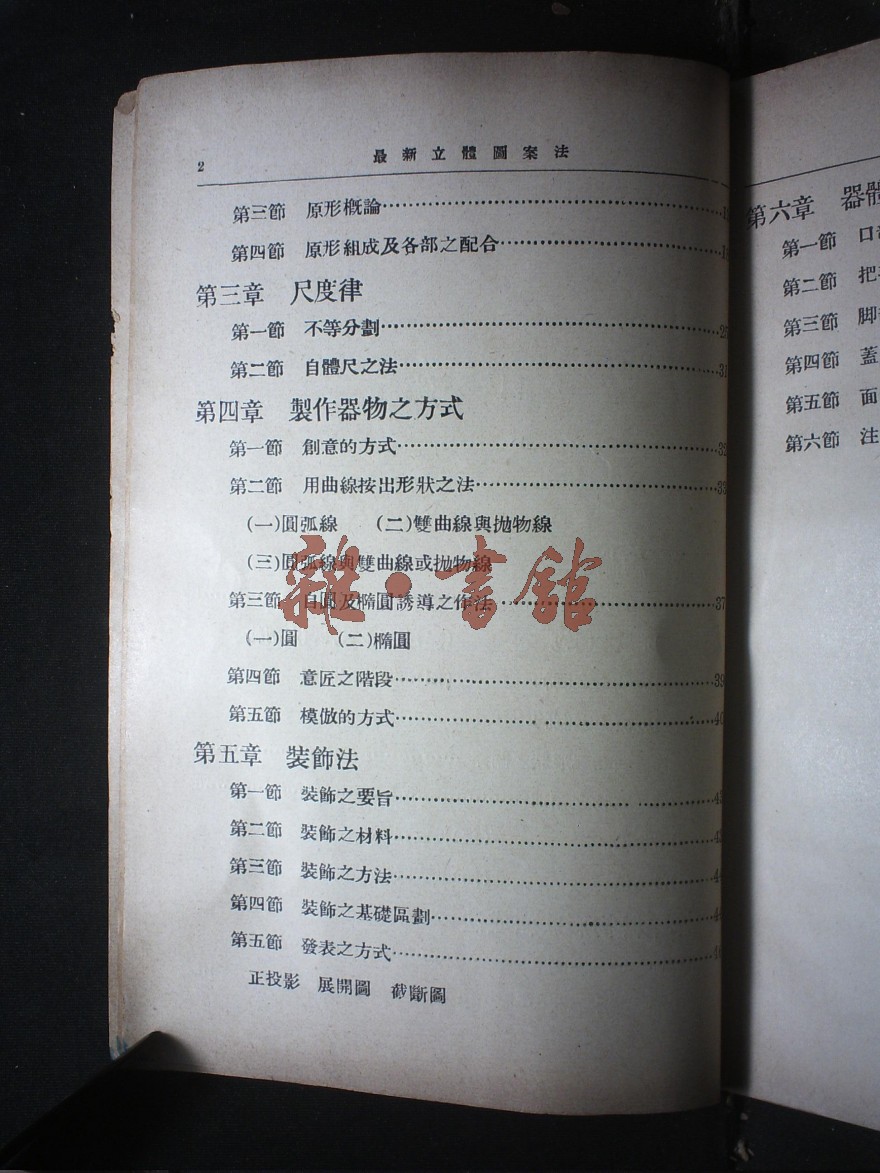 2
最新立體圖案法
第三節 原形概論
第四節 原形組成及各部之配合
第三章 尺度律
第一節 不等分劃
第二節 自體尺之法 31
第四章 製作器物之方式
第一節 創意的方式 32
第二節 用曲線按出形狀之法 33
(一)圓弧線 (二)雙曲線與拋物線
(三)圓弧線與雙曲線或拋物線
第三節 自圓及橢圓誘導之作法 37
(一)圓 (二)橢圓
第四節 意匠之階段 39
第五節 模倣的方式 40
第五章 裝飾法
第一節 裝飾之要旨
第二節 裝飾之材料
第三節 裝飾之方法
第四節 裝飾之基礎區劃
第五節 發表之方式
正投影 展開圖 截斷圖
雜·書館
第六章 器體
第一節 口
第二節 把
第三節 脚
第四節 蓋
第五節 面
第六節 注